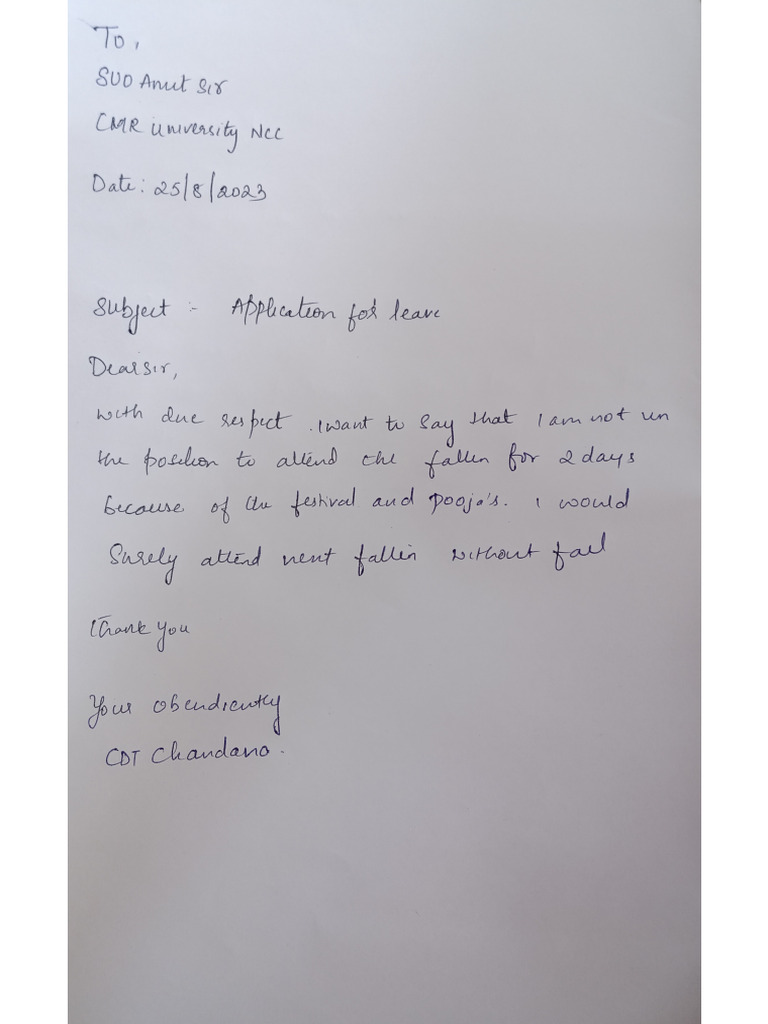 To,
SUO Amit Sir
CMR University NCC
Date: 25/8/2023
Subject :- Application for leave
Dear sir,
with due respect . I want to say that I am not in
the position to attend the fallin for 2 days
because of the festival and pooja's. I would
Surely attend next fallin without fail
Thank you
Your obendiently
CDT Chandana.